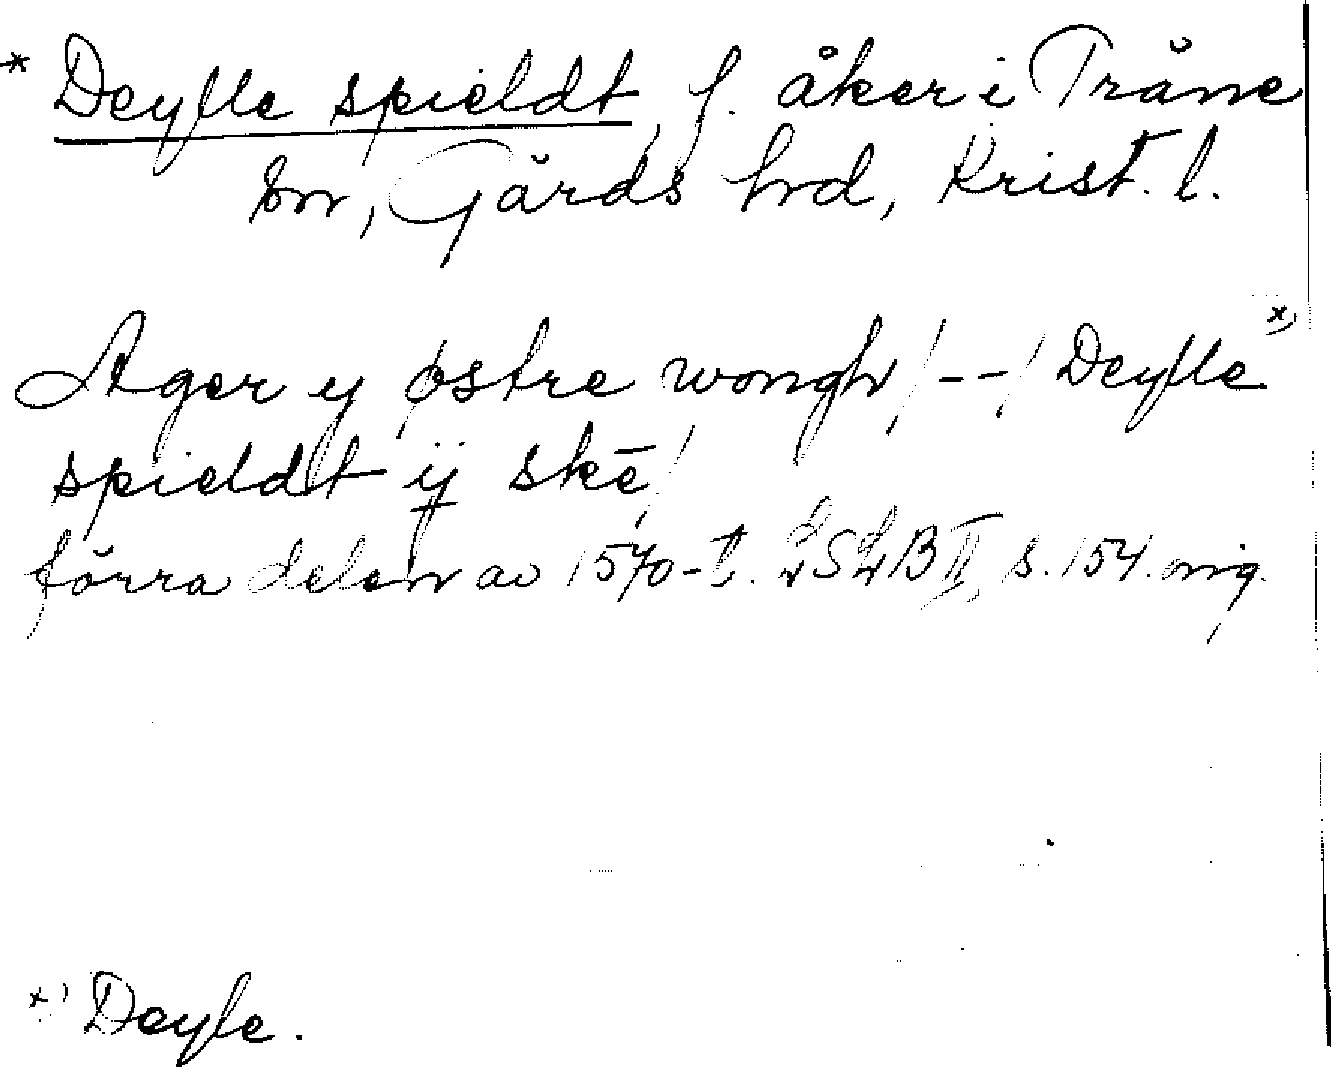 * Deylle spieldt, f. åker i Träne
sn, Gärds hd, Krist. l.
Ager y østre wongh /--/ Deylle x)
spieldt ij skē/
förra delen av 1570-t. LSLB II, s. 154. orig.
x) Deyle.